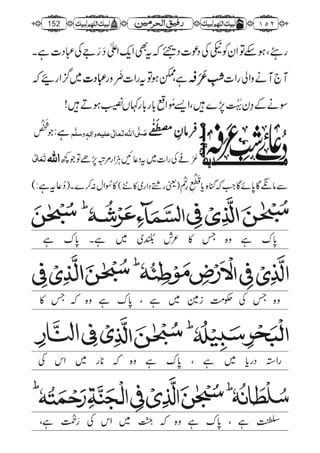 152 لبيك اللهم لبيك رفيق الحرمين لبيك اللهم لبيك ١٥٢
رہئے، ہوسکے تو ان کو نیکی کی دعوت دیجئے یہ بھی ایک اعلیٰ دَرَجے کی عبادت ہے۔
آج آنے والی رات شبِ عَرَفہ ہے، ممکن ہو تو یہ رات ضَرور عبادت میں گزارئیے کہ
سونے کے دن بَہُت پڑے ہیں، ایسے مواقع بار بار کہاں نصیب ہوتے ہیں!
دُعائے شبِ عَرَفہ
فرمانِ مصطَفٰے صَلَّی اللہُ تَعَالٰی عَلَیْہِ وَاٰلِہٖ وَسَلَّم ہے: جو شخص
عَرَفے کی رات میں یہ دعائیں ہزار مرتبہ پڑھے تو جو کچھ اللہ تَعَالٰی
سے مانگے گا پائے گا جب کہ گناہ یا قَطْعِ رِحْم (یعنی رشتے داری کاٹنے) کا سوال نہ کرے۔ (دُعا یہ ہے:)
سُبْحٰنَ الَّذِیْ فِی السَّمَآءِ عَرْشُہٗ ؕ سُبْحٰنَ
پاک ہے وہ جس کا عرش بلندی میں ہے۔ پاک ہے
الَّذِیْ فِی الْاَرْضِ مَوْطِئُہٗ ؕ سُبْحٰنَ الَّذِیْ فِی
وہ جس کی حکومت زمین میں ہے ، پاک ہے وہ کہ جس کا
الْبَحْرِ سَبِیْلُہٗ ؕ سُبْحٰنَ الَّذِیْ فِی النَّارِ
راستہ دریا میں ہے ، پاک ہے وہ کہ نار میں اس کی
سُلْطَانُہٗ ؕ سُبْحٰنَ الَّذِیْ فِی الْجَنَّۃِ رَحْمَتُہٗ ؕ
سلطنت ہے ، پاک ہے وہ کہ جنّت میں اس کی رَحْمت ہے،